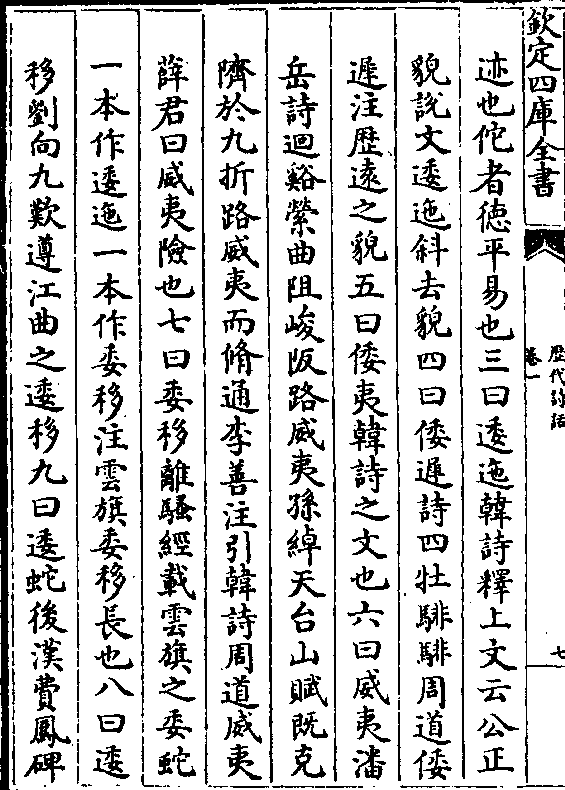 欽定四庫全書
歷代詩話
卷一
七
迹也佗者德平易也三曰逶迤韓詩釋上文云公正
貌說文逶迤斜去貌四曰倭遲詩四牡騑騑周道倭
遲注歴遠之貌五曰倭夷韓詩之文也六曰威夷潘
岳詩迴谿縈曲阻峻阪路威夷孫綽天台山賦既克
隮於九折路威夷而脩通李善注引韓詩周道威夷
薛君曰威夷險也七曰委移離騷經載雲旗之委蛇
一本作逶迤一本作委移注雲旗委移長也八曰逶
移劉向九歎遵江曲之逶移九曰逶蛇後漢費鳳碑